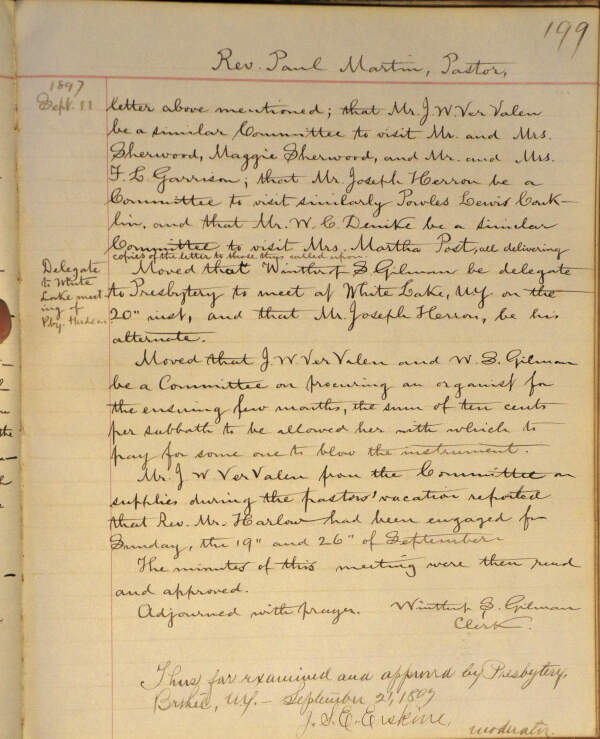 199
Rev. Paul Martin, Pastor,
1897
Sept. 11
letter above mentioned; that Mr. J. W. Ver Valen
be a similar Committee to visit Mr. and Mrs.
Sherwood, Maggie Sherwood, and Mr. and Mrs.
F. L. Garrison; that Mr. Joseph Herron be a
Committee to visit similarly Powles Lewis Conk-
lin, and that Mr. W. C. Demike be a similar
Committee to visit Mrs. Martha Post, all delivering
copies of the letter to those thus called upon.
Delegate
to White
Lake meet-
ing of
Pby. Hudson
Moved that Winthrop S. Gilman be delegate
to Presbytery to meet at White Lake, NY on the
20" inst, and that Mr. Joseph Herron, be his
alternate.
Moved that J. W. Ver Valen and W. S. Gilman
be a Committee on procuring an organist for
the ensuing few months, the sum of ten cents
per sabbath to be allowed her with which to
pay for some one to blow the instrument.
Mr. J W Ver Valen from the Committee on
supplies during the pastors' vacation reported
that Rev. Mr. Harlow had been engaged for
Sunday, the 19" and 26" of September
The minutes of this meeting were then read
and approved.
Adjourned with prayer. Winthrop S. Gilman
Clerk.
Thus far examined and approved by Presbytery,
NY. – September 21, 1897
J. S. E. Erskine,
moderator.